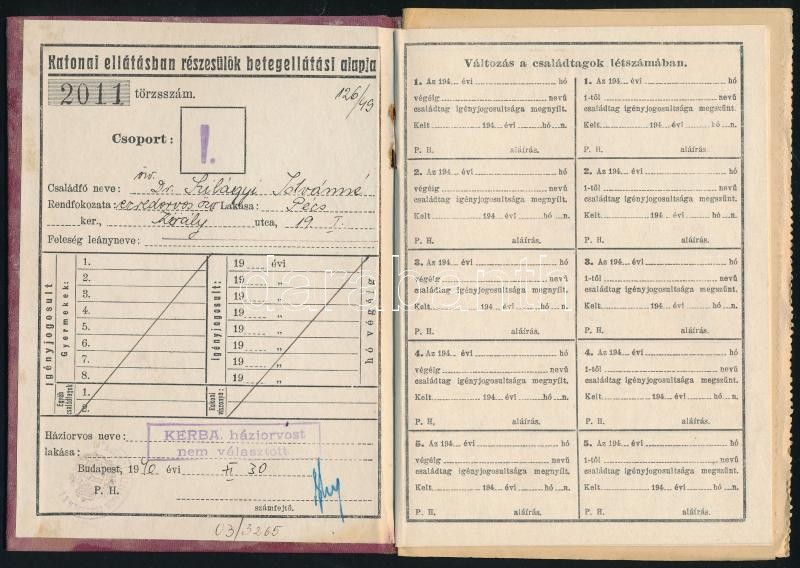 Katonai ellátásban részesülők betegellátási alapja
2011 törzsszám. 126/49
Csoport: I.
özv.
Családfő neve: Dr. Szilágyi Istvánné
Rendfokozata: ezredorvos özv. Lakása: Pécs
ker., Király utca, 19 I.
Feleség leányneve:
Igényjogosult
Gyermekek:
1.
2.
3.
4.
5.
6.
7.
8.
Egyéb családtagok
1.
2.
Igényjogosult:
19 évi
19 „
19 „
19 „
19 „
19 „
19 „
hó végéig
Háziorvos neve:
lakása:
KERBA. háziorvost
nem választott
Budapest, 1940 évi XI. 30
P. H.
számfejtő.
03/3265
Változás a családtagok létszámában.
1. Az 194... évi hó
végéig nevű
családtag igényjogosultsága megnyílt.
Kelt 194... évi hó...n.
P. H. aláírás.
1. Az 194... évi hó
1-től nevű
családtag igényjogosultsága megszünt.
Kelt 194... évi hó...n.
P. H. aláírás.
2. Az 194... évi hó
végéig nevű
családtag igényjogosultsága megnyílt.
Kelt 194... évi hó...n.
P. H. aláírás.
2. Az 194... évi hó
1-től nevű
családtag igényjogosultsága megszünt.
Kelt 194... évi hó...n.
P. H. aláírás.
3. Az 194... évi hó
végéig nevű
családtag igényjogosultsága megnyílt.
Kelt 194... évi hó...n.
P. H. aláírás.
3. Az 194... évi hó
1-től nevű
családtag igényjogosultsága megszünt.
Kelt 194... évi hó...n.
P. H. aláírás.
4. Az 194... évi hó
végéig nevű
családtag igényjogosultsága megnyílt.
Kelt 194... évi hó...n.
P. H. aláírás.
4. Az 194... évi hó
1-től nevű
családtag igényjogosultsága megszünt.
Kelt 194... évi hó...n.
P. H. aláírás.
5. Az 194... évi hó
végéig nevű
családtag igényjogosultsága megnyílt.
Kelt 194... évi hó...n.
P. H. aláírás.
5. Az 194... évi hó
1-től nevű
családtag igényjogosultsága megszünt.
Kelt 194... évi hó...n.
P. H. aláírás.
darabanth